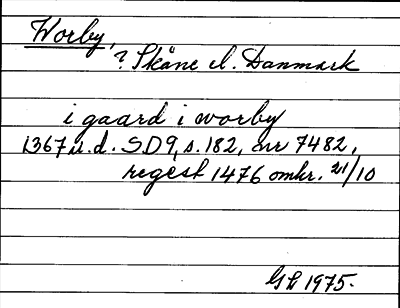 Worby,
? Skåne el. Danmark
i gaard i worby
1367 u.d. SD9, s. 182, nr 7482,
regest 1476 omkr. 21/10
GL 1975.